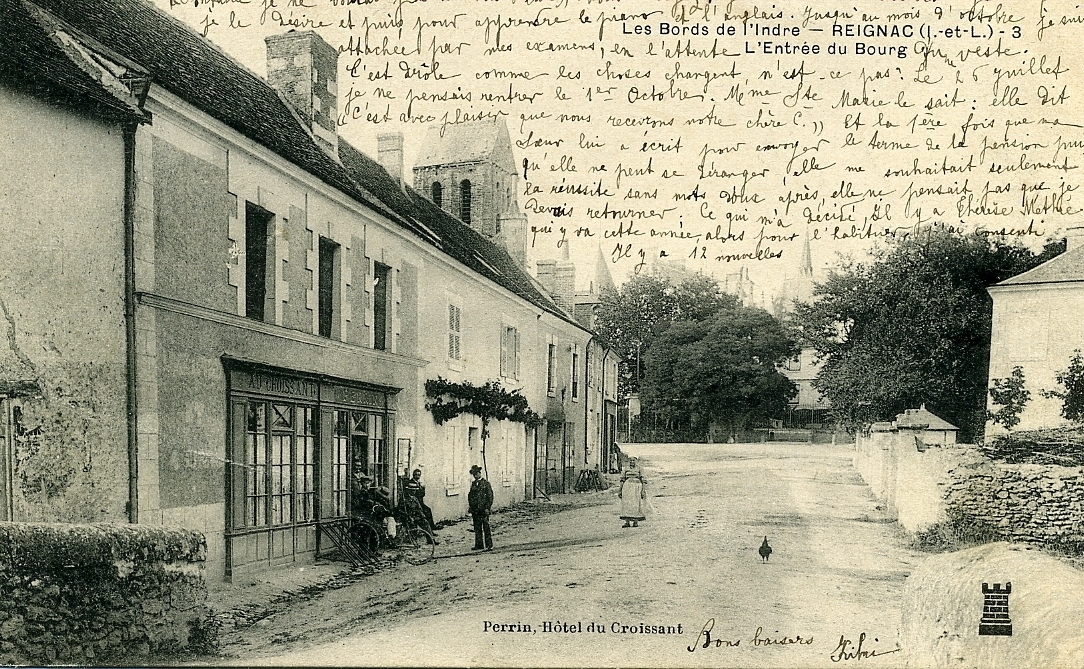 je ne
je le désire et puis pour apprendre le piano et l'anglais. Jusqu'au mois d'octobre je suis
attachée par mes examens, en l'attente
Les Bords de l'Indre — REIGNAC (I.-et-L.) - 3
L'Entrée du Bourg
C'est drôle comme les choses changent, n'est-ce pas? Le 26 juillet
je ne pensais rentrer le 1er Octobre. Mme Ste Marie le sait : elle dit
"C'est avec plaisir que nous recevrons notre chère C.,, Et la 1ère fois que ma
sœur lui a écrit pour envoyer le terme de la pension
qu'elle ne peut se déranger elle me souhaitait seulement
la réussite sans mots après, elle ne pensait pas que je
devais retourner; Ce qui m'a décidé, il y a Thérèse
qui y va cette année, alors pour l'habituer j'ai consenti
Il y a 12 nouvelles
AU CROISSANT
Perrin, Hôtel du Croissant
Bons baisers